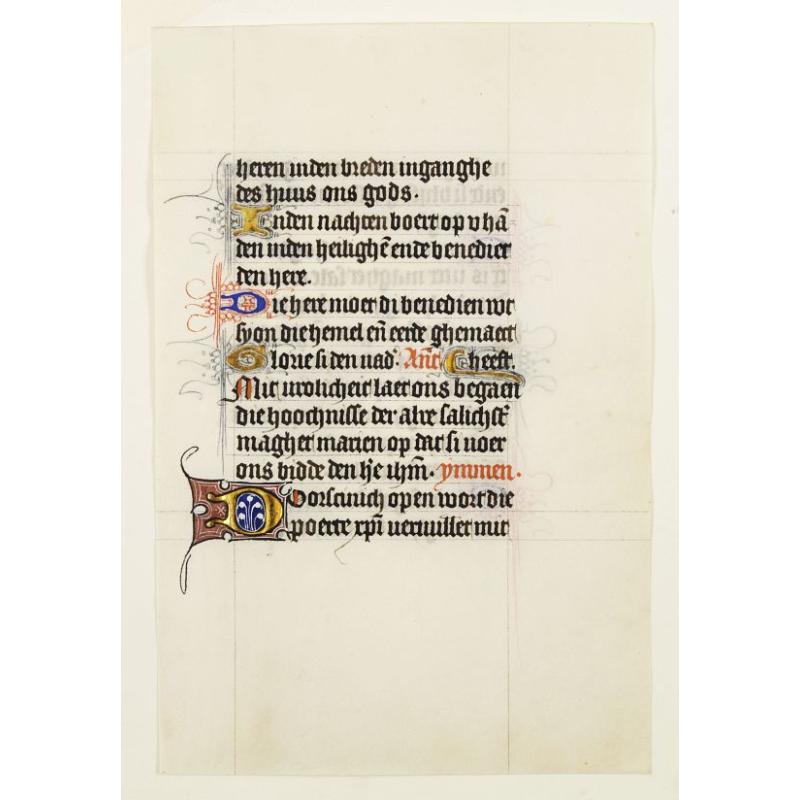 heren inden breden inganghe
des huus ons gods.
Inden nachten boert op v hā
den inden heilighē ende benediet
den here.
Die here moet di benedien wt
syon die hemel eñ eerde ghemaect
Glorie si den vad. Ant Gheest.
Mit vrolicheit laet ons begaen
die hoochnisse der alre salichst
maghet marien op dat si voer
ons bidde den hē ihm. ymmen.
Doerscinich open wort die
poerte xpi vervullet mit